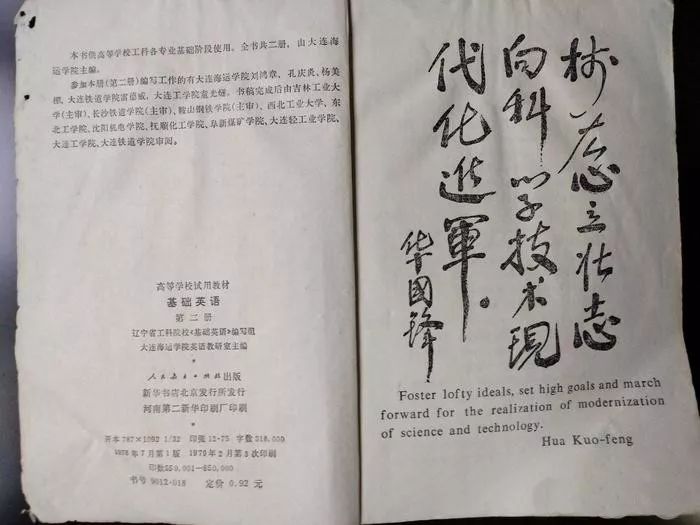 本书供高等学校工科各专业基础阶段使用。全书共二册，由大连海
运学院主编。
参加本册(第二册)编写工作的有大连海运学院刘鸿章、孔庆炎、杨美
楣，大连铁道学院雷德威，大连工学院童光熖。书稿完成后由吉林工业大
学(主审)、长沙铁道学院(主审)、鞍山钢铁学院(主审)、西北工业大学、东
北工学院、沈阳机电学院、抚顺化工学院、阜新煤矿学院、大连轻工业学院、
大连工学院、大连铁道学院审阅。
高等学校试用教材
基础英语
第二册
辽宁省工科院校《基础英语》编写组
大连海运学院英语教研室主编
*
人民教育出版社出版
新华书店北京发行所发行
河南第二新华印刷厂印刷
*
开本 787×1092 1/32 印张 12.75 字数 316,000
1978年7月第1版 1979年2月第3次印刷
印数 550,001—850,000
书号 9012·018 定价 0.92 元
树雄心立壮志
向科学技术现
代化进軍。
华國锋
Foster lofty ideals, set high goals and march
forward for the realization of modernization
of science and technology.
Hua Kuo-feng